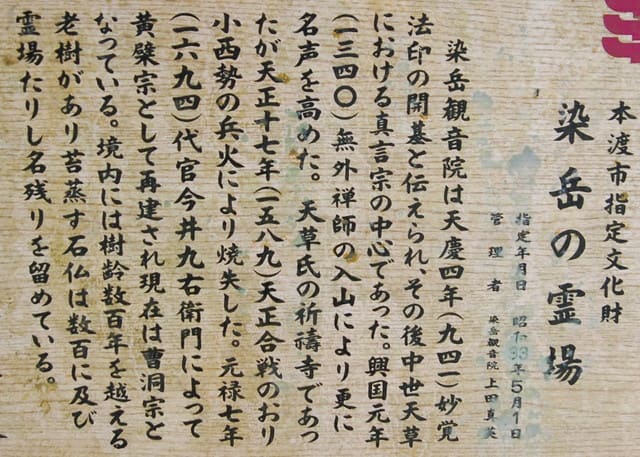 本渡市指定文化財
染岳の霊場
指定年月日 昭和33年5月1日
管理者 染岳観音院 上田真英
染岳観音院は天慶四年(九四一)妙覚
法印の開基と伝えられ、その後中世天草
における真言宗の中心であった。興国元年
(一三四〇)無外禅師の入山により更に
名声を高めた。天草氏の祈禱寺であっ
たが天正十七年(一五八九)天正合戦のおり
小西勢の兵火により焼失した。元禄七年
(一六九四)代官今井九右衛門によって
黄檗宗として再建され現在は曹洞宗と
なっている。境内には樹齢数百年を越える
老樹があり苔蒸す石仏は数百に及び
霊場たりし名残りを留めている。